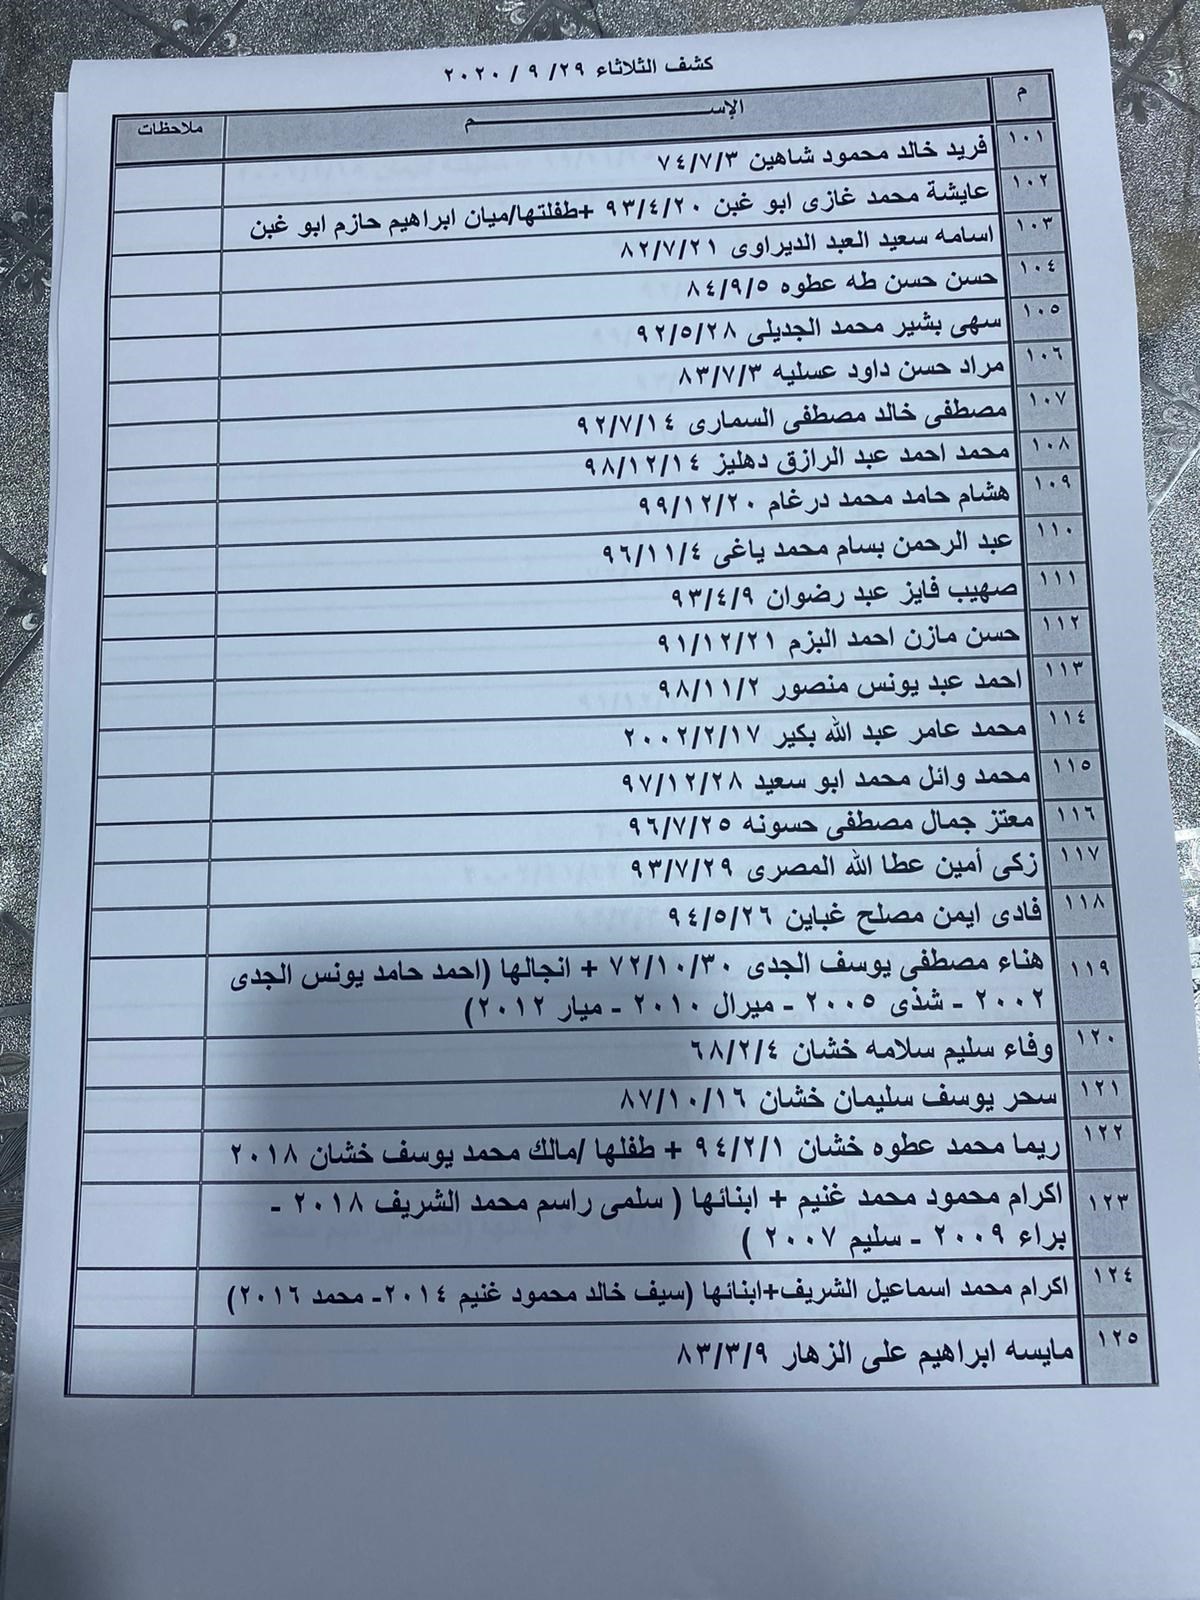 كشف الثلاثاء ٢٩/ ٩ / ٢٠٢٠
م الإســـــــــم ملاحظات
١٠١ فريد خالد محمود شاهين ٧٤/٧/٣
١٠٢ عايشة محمد غازى ابو غبن ٩٣/٤/٢٠ +طفلتها/ميان ابراهيم حازم ابو غبن
١٠٣ اسامه سعيد العبد الديراوى ٨٢/٧/٢١
١٠٤ حسن حسن طه عطوه ٨٤/٩/٥
١٠٥ سهى بشير محمد الجديلى ٩٢/٥/٢٨
١٠٦ مراد حسن داود عسليه ٨٣/٧/٣
١٠٧ مصطفى خالد مصطفى السمارى ٩٢/٧/١٤
١٠٨ محمد احمد عبد الرازق دهليز ٩٨/١٢/١٤
١٠٩ هشام حامد محمد درغام ٩٩/١٢/٢٠
١١٠ عبد الرحمن بسام محمد ياغى ٩٦/١١/٤
١١١ صهيب فايز عبد رضوان ٩٣/٤/٩
١١٢ حسن مازن احمد البزم ٩١/١٢/٢١
١١٣ احمد عبد يونس منصور ٩٨/١١/٢
١١٤ محمد عامر عبد الله بكير ٢٠٠٢/٢/١٧
١١٥ محمد وائل محمد ابو سعيد ٩٧/١٢/٢٨
١١٦ معتز جمال مصطفى حسونه ٩٦/٧/٢٥
١١٧ زكى أمين عطا الله المصرى ٩٣/٧/٢٩
١١٨ فادى ايمن مصلح غباين ٩٤/٥/٢٦
١١٩ هناء مصطفى يوسف الجدى ٧٢/١٠/٣٠ + انجالها (احمد حامد يونس الجدى
٢٠٠٢ - شذى ٢٠٠٥ - ميرال ٢٠١٠ - ميار ٢٠١٢)
١٢٠ وفاء سليم سلامه خشان ٦٨/٢/٤
١٢١ سحر يوسف سليمان خشان ٨٧/١٠/١٦
١٢٢ ريما محمد عطوه خشان ٩٤/٢/١ + طفلها /مالك محمد يوسف خشان ٢٠١٨
١٢٣ اكرام محمود محمد غنيم + ابنائها ( سلمى راسم محمد الشريف ٢٠١٨ -
براء ٢٠٠٩ - سليم ٢٠٠٧ )
١٢٤ اكرام محمد اسماعيل الشريف+ابنائها (سيف خالد محمود غنيم ٢٠١٤- محمد ٢٠١٦)
١٢٥ مايسه ابراهيم على الزهار ٨٣/٣/٩